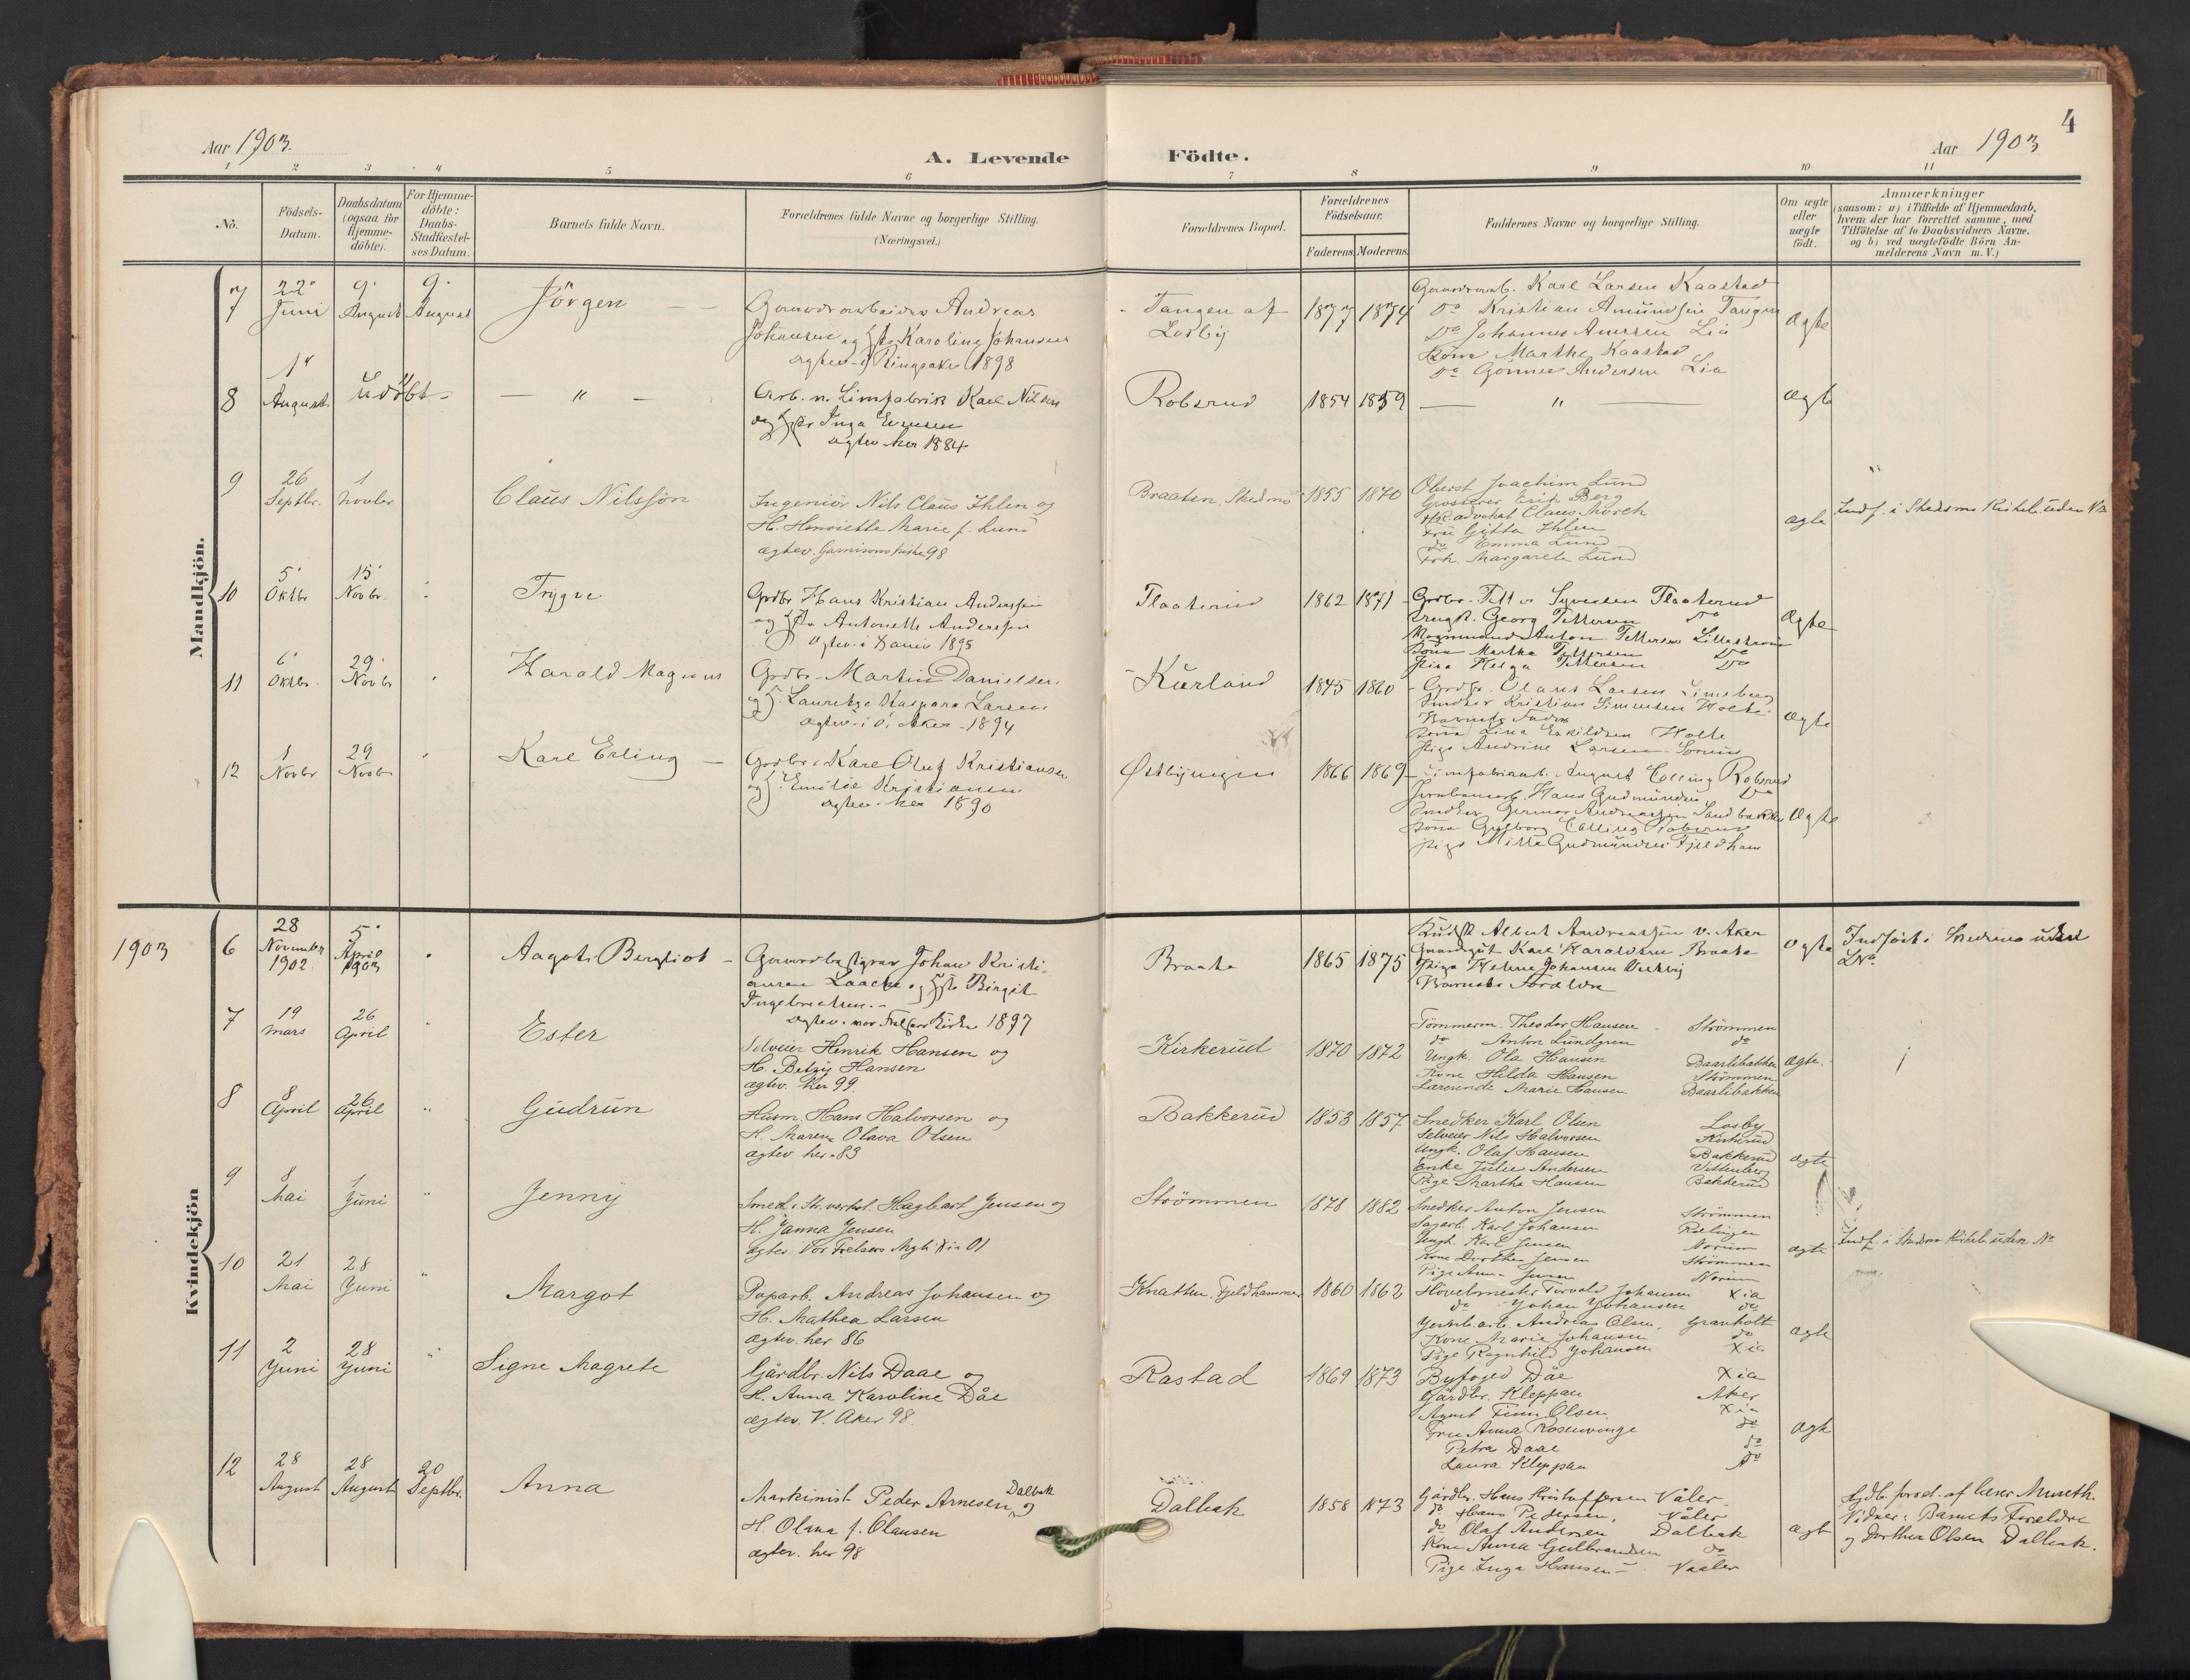 4
Aar 1903.
A. Levende Födte.
Aar 1903
1 2 3 4 5 6 7 8 9 10 11
No.
Födsels-
Datum.
Daabsdatum
(ogsaa for
Hjemme-
döbte).
For Hjemme-
döbte:
Daabs-
Stadfæstel-
ses Datum.
Barnets fulde Navn.
Forældrenes fulde Navne og borgerlige Stilling.
(Næringsvei.)
Forældrenes Bopæl.
Forældrenes
Födselsaar.
Faderens Moderens
Faddernes Navne og borgerlige Stilling.
Om ægte
eller
uægte
födt.
Anmærkninger
(saasom: a) i Tilfælde af Hjemmedaab,
hvem der har forrettet samme, med
Tilföielse af to Daabsvidners Navne.
og b) ved uægtefödte Börn An-
melderens Navn m. V.)
Mandkjön.
7
22
Juni
9
August
9
August
Jörgen
Gaardsarbeider Andreas
Johansen og Karoline Johansen
ægtev. i Ringsaker 1898
Tangen af
Losby
1877 1874
Gaardsarb. Karl Larsen Kaastad
Do Kristian Amundsen Tangen
Do Johannes Andersen Lia
Kone Marthe Kaastad
Do Andersen Lia
Ægte
8
1
August
Udöbt
"
Arb. v. Limfabrik Karl Nilsen
og Inga Evensen
ægtev. her 1884
Robsrud
1854 1859
"
Ægte
9
26
Septbr.
1
Novbr
Claus Nilssön
Ingeniör Nils Claus Ihlen og
H. Henriette Marie f. Lund
ægtev. Garnisons kirke 98
Braaten, Skedsmo
1855 1870
Oberst Joachim Lund
Grosserer Erik Berg
HR. advokat Claus Mörch
Fru Gitta Ihlen
do Emma Lund
Frk. Margarete Lund
ægte
Indf. i Skedsmo Kirkeb. uden No
10
5
Oktbr
15
Novbr.
Trygve
Grdbr Hans Kristian Anderssen
og Antonette Anderssen
ægtev. i 1895
Flaaterud
1862 1871
Grdbr. Syversen Flaaterud
Georg Pettersen Do
Anton Pettersen Lillestrøm
Kone Martha Pettersen Do
Pige Helga Pettersen Do
Ægte
11
6
Oktbr.
29
Novbr
Harald Magnus
Grdbr. Martin Danielsen
og Lauritze Kaspara Larsen
ægtev. i Ö. Aker 1894
Kurland
1845 1860
Grdbr. Olaus Larsen
Snedker Kristian Simensen Holte
Barnets Fader
Kone Lina Eskildsen Holte
Pige Andrine Larsen
Ægte
12
1
Novbr
29
Novbr
Karl Erling
Grdbr. Karl Oluf Kristiansen
og Emilie Kristiansen
ægtev. her 1890
Østbyengen
1866 1869
Limfabrikarb. August Colling Robsrud
Jernbanearb. Hans Gudmundsen Do
Snedker Andreassen Sandbakken
Kone Colling Robsrud
Pige Mille Gudmundsen Fjeldham
Ægte
Kvindekjön
1903
6
28
November
1902
5
April
1903
Aagot Bergliot
Gaardbestyrer Johan Kristi-
ansen Laache og Birgit
Ingebretsen.
ægtev. vor Frelsers Kirke 1897
Braate
1865 1875
Albert Andreassen v. Aker
Gaardgut Karl Haraldsen Braate
Pige Helene Johansen
Barnets Forældre
Ægte
Indfört i Skedsmo uden
No.
7
19
Mars
26
April
Ester
Selveier Henrik Hansen og
H. Betzy Hansen
ægtev. her 99
Kirkerud
1870 1872
Tömmerm. Theodor Hansen Strömmen
do Anton Lundgren do
Ungk. Ola Hansen Baarlibakken
Kone Hilda Hansen Strömmen
Lærerinde Marie Hansen Baarlibakken
ægte.
8
8
April
26
April
Gudrun
Husm. Hans Halvorsen og
H. Maren Olava Olsen
ægtev. her 83
Bakkerud
1853 1857
Snedker Karl Olsen Losby
Selveier Nils Halvorsen Kirkerud
Ungk. Olaf Hansen Bakkerud
Enke Julie Andersen Vittenberg
Pige Martha Hansen Bakkerud
ægte
9
8
Mai
1
Juni
Jenny
Smed i Str. verkst. Hagbart Jensen og
H. Janna Jensen
ægtev. Vor Frelsers Kia 01
Strömmen
1878 1882
Snedker Anton Jensen Strömmen
Sagarb. Karl Johansen Rælingen
Ungk. Karl Jensen Norum
Kone Dorthea Jensen Strömmen
Pige Anna Jensen Norum
ægte
Indf. i Skedsmo Kirkeb. uden No
10
21
Mai
28
Juni
Margot
Paparb. Andreas Johansen og
H. Mathea Larsen
ægtev. her 86
Knatten, Fjeldhammer
1860 1862
Hövelmester Torvald Johansen Xia
do Johan Johansen do
Jernb. arb. Andreas Olsen, Granholt
Kone Marie Johansen do
Pige Ragnhild Johansen Xia
ægte
11
2
Juni
28
Juni
Signe Magrete
Gårdbr. Nils Daae og
H. Anna Karoline Dåe
ægtev. V. Aker 98.
Rastad
1869 1873
Byfoged Dåe Xia
Gårdbr. Kleppan Aker
Agent Finn Olsen Xia
Fru Anna Rosenvinge do
Petra Daae do
Laura Kleppan do
ægte
12
28
August
28
August
20
Septbr.
Anna
Maskinist Peder Arnesen Dalbak og
H. Olma f. Olausen
ægtev. her 98
Dalbak
1858 1873
Gårdbr. Hans Kristoffersen Våler
do Hans Pedersen, Våler
do Olaf Andersen Dalbak
Kone Anna Gulbrandsen do
Pige Inga Hansen Vaaler
ægte
Hjdb. forret. af lærer Museth.
Vidner: Barnets Forældre
og Dorthea Olsen Dalbak.